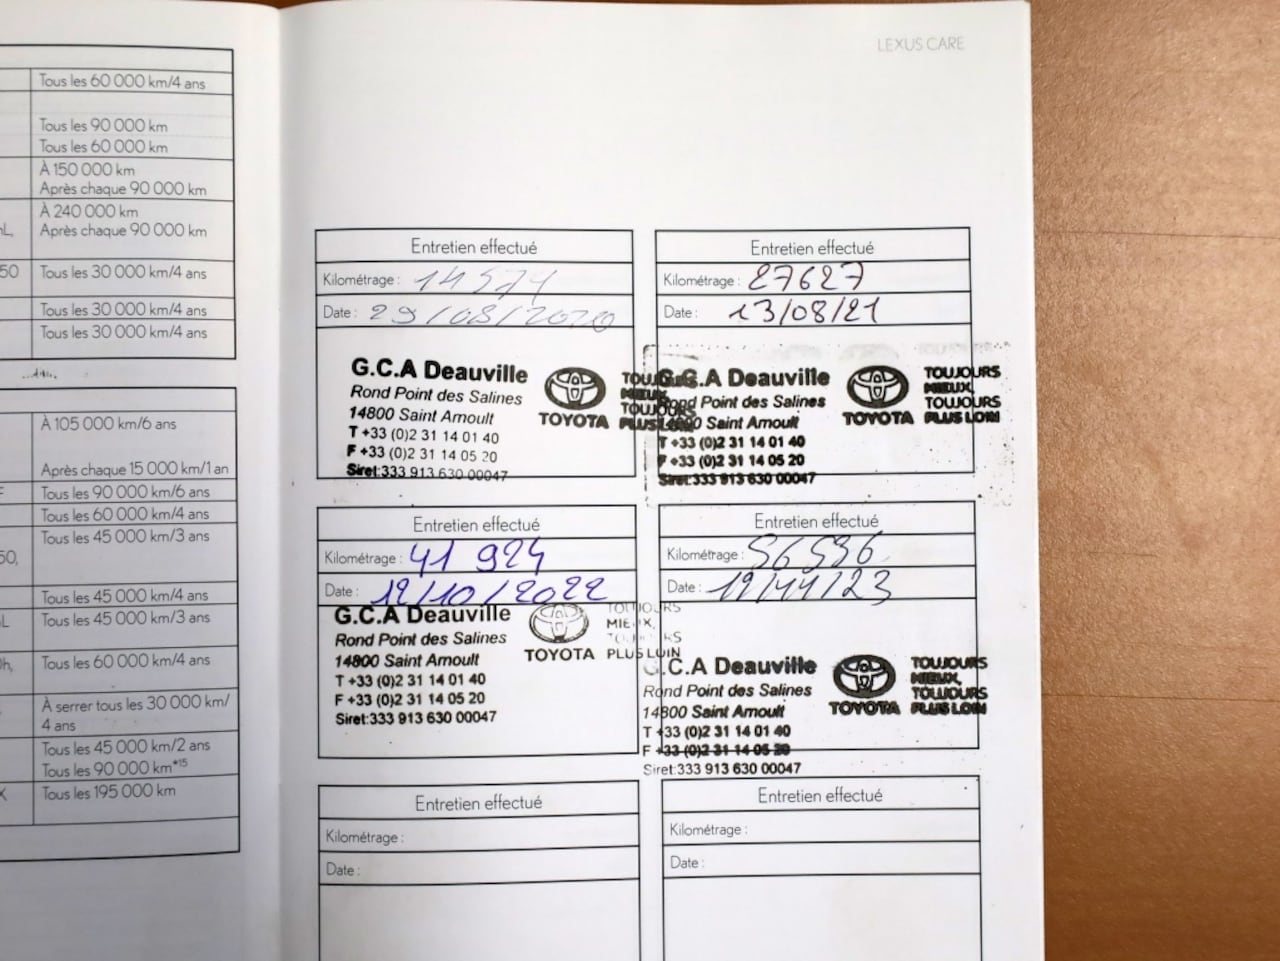 Tous les 60 000 km/4 ans
Tous les 90 000 km
Tous les 60 000 km
À 150 000 km
Après chaque 90 000 km
À 240 000 km
Après chaque 90 000 km
Tous les 30 000 km/4 ans
Tous les 30 000 km/4 ans
Tous les 30 000 km/4 ans
À 105 000 km/6 ans
Après chaque 15 000 km/1 an
Tous les 90 000 km/6 ans
Tous les 60 000 km/4 ans
Tous les 45 000 km/3 ans
Tous les 45 000 km/4 ans
Tous les 45 000 km/3 ans
Tous les 60 000 km/4 ans
À serrer tous les 30 000 km/
4 ans
Tous les 45 000 km/2 ans
Tous les 90 000 km*15
Tous les 195 000 km
LEXUS CARE
Entretien effectué
Kilométrage : 14 574
Date : 29/08/2020
G.C.A Deauville
Rond Point des Salines
14800 Saint Arnoult
T +33 (0)2 31 14 01 40
F +33 (0)2 31 14 05 20
Siret:333 913 630 00047
TOYOTA
TOUJOURS
MIEUX,
TOUJOURS
PLUS LOIN
Entretien effectué
Kilométrage : 27627
Date : 13/08/21
G.C.A Deauville
Rond Point des Salines
14800 Saint Arnoult
T +33 (0)2 31 14 01 40
F +33 (0)2 31 14 05 20
Siret:333 913 630 00047
TOYOTA
TOUJOURS
MIEUX,
TOUJOURS
PLUS LOIN
Entretien effectué
Kilométrage : 41 924
Date : 12/10/2022
G.C.A Deauville
Rond Point des Salines
14800 Saint Arnoult
T +33 (0)2 31 14 01 40
F +33 (0)2 31 14 05 20
Siret:333 913 630 00047
TOYOTA
TOUJOURS
MIEUX,
TOUJOURS
PLUS LOIN
Entretien effectué
Kilométrage : 56596
Date :
G.C.A Deauville
Rond Point des Salines
14800 Saint Arnoult
T +33 (0)2 31 14 01 40
F +33 (0)2 31 14 05 20
Siret:333 913 630 00047
TOYOTA
TOUJOURS
MIEUX,
TOUJOURS
PLUS LOIN
Entretien effectué
Kilométrage :
Date :
Entretien effectué
Kilométrage :
Date :